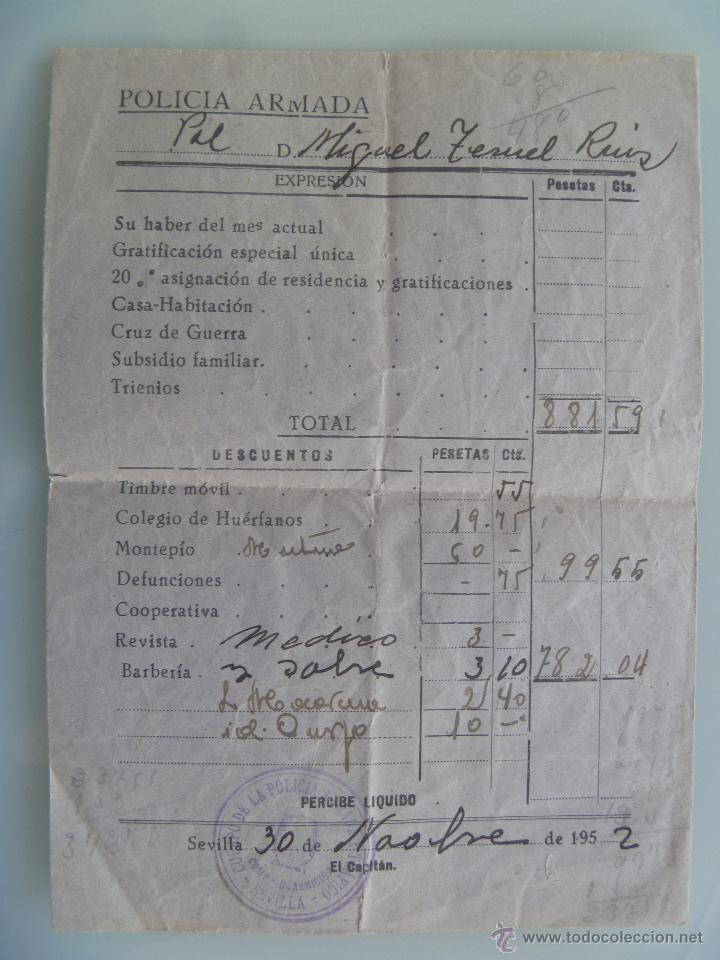 60
8
480
POLICIA ARMADA
Pol D. Miguel Teruel Ruiz
EXPRESIÓN Pesetas Cts.
Su haber del mes actual
Gratificación especial única
20 o/o asignación de residencia y gratificaciones
Casa-Habitación
Cruz de Guerra
Subsidio familiar.
Trienios
TOTAL 881 59
DESCUENTOS PESETAS Cts.
Timbre móvil 55
Colegio de Huérfanos 19.75
Montepío 60 -
Defunciones - 75 99 55
Cooperativa
Revista Medico 3 -
Barbería y sobre 3 10 782 04
L Macarena 2 40
id. 10 -
PERCIBE LIQUIDO
Sevilla 30 de Novbre de 1952
El Capitán.
SEVILLA
www.todocoleccion.net